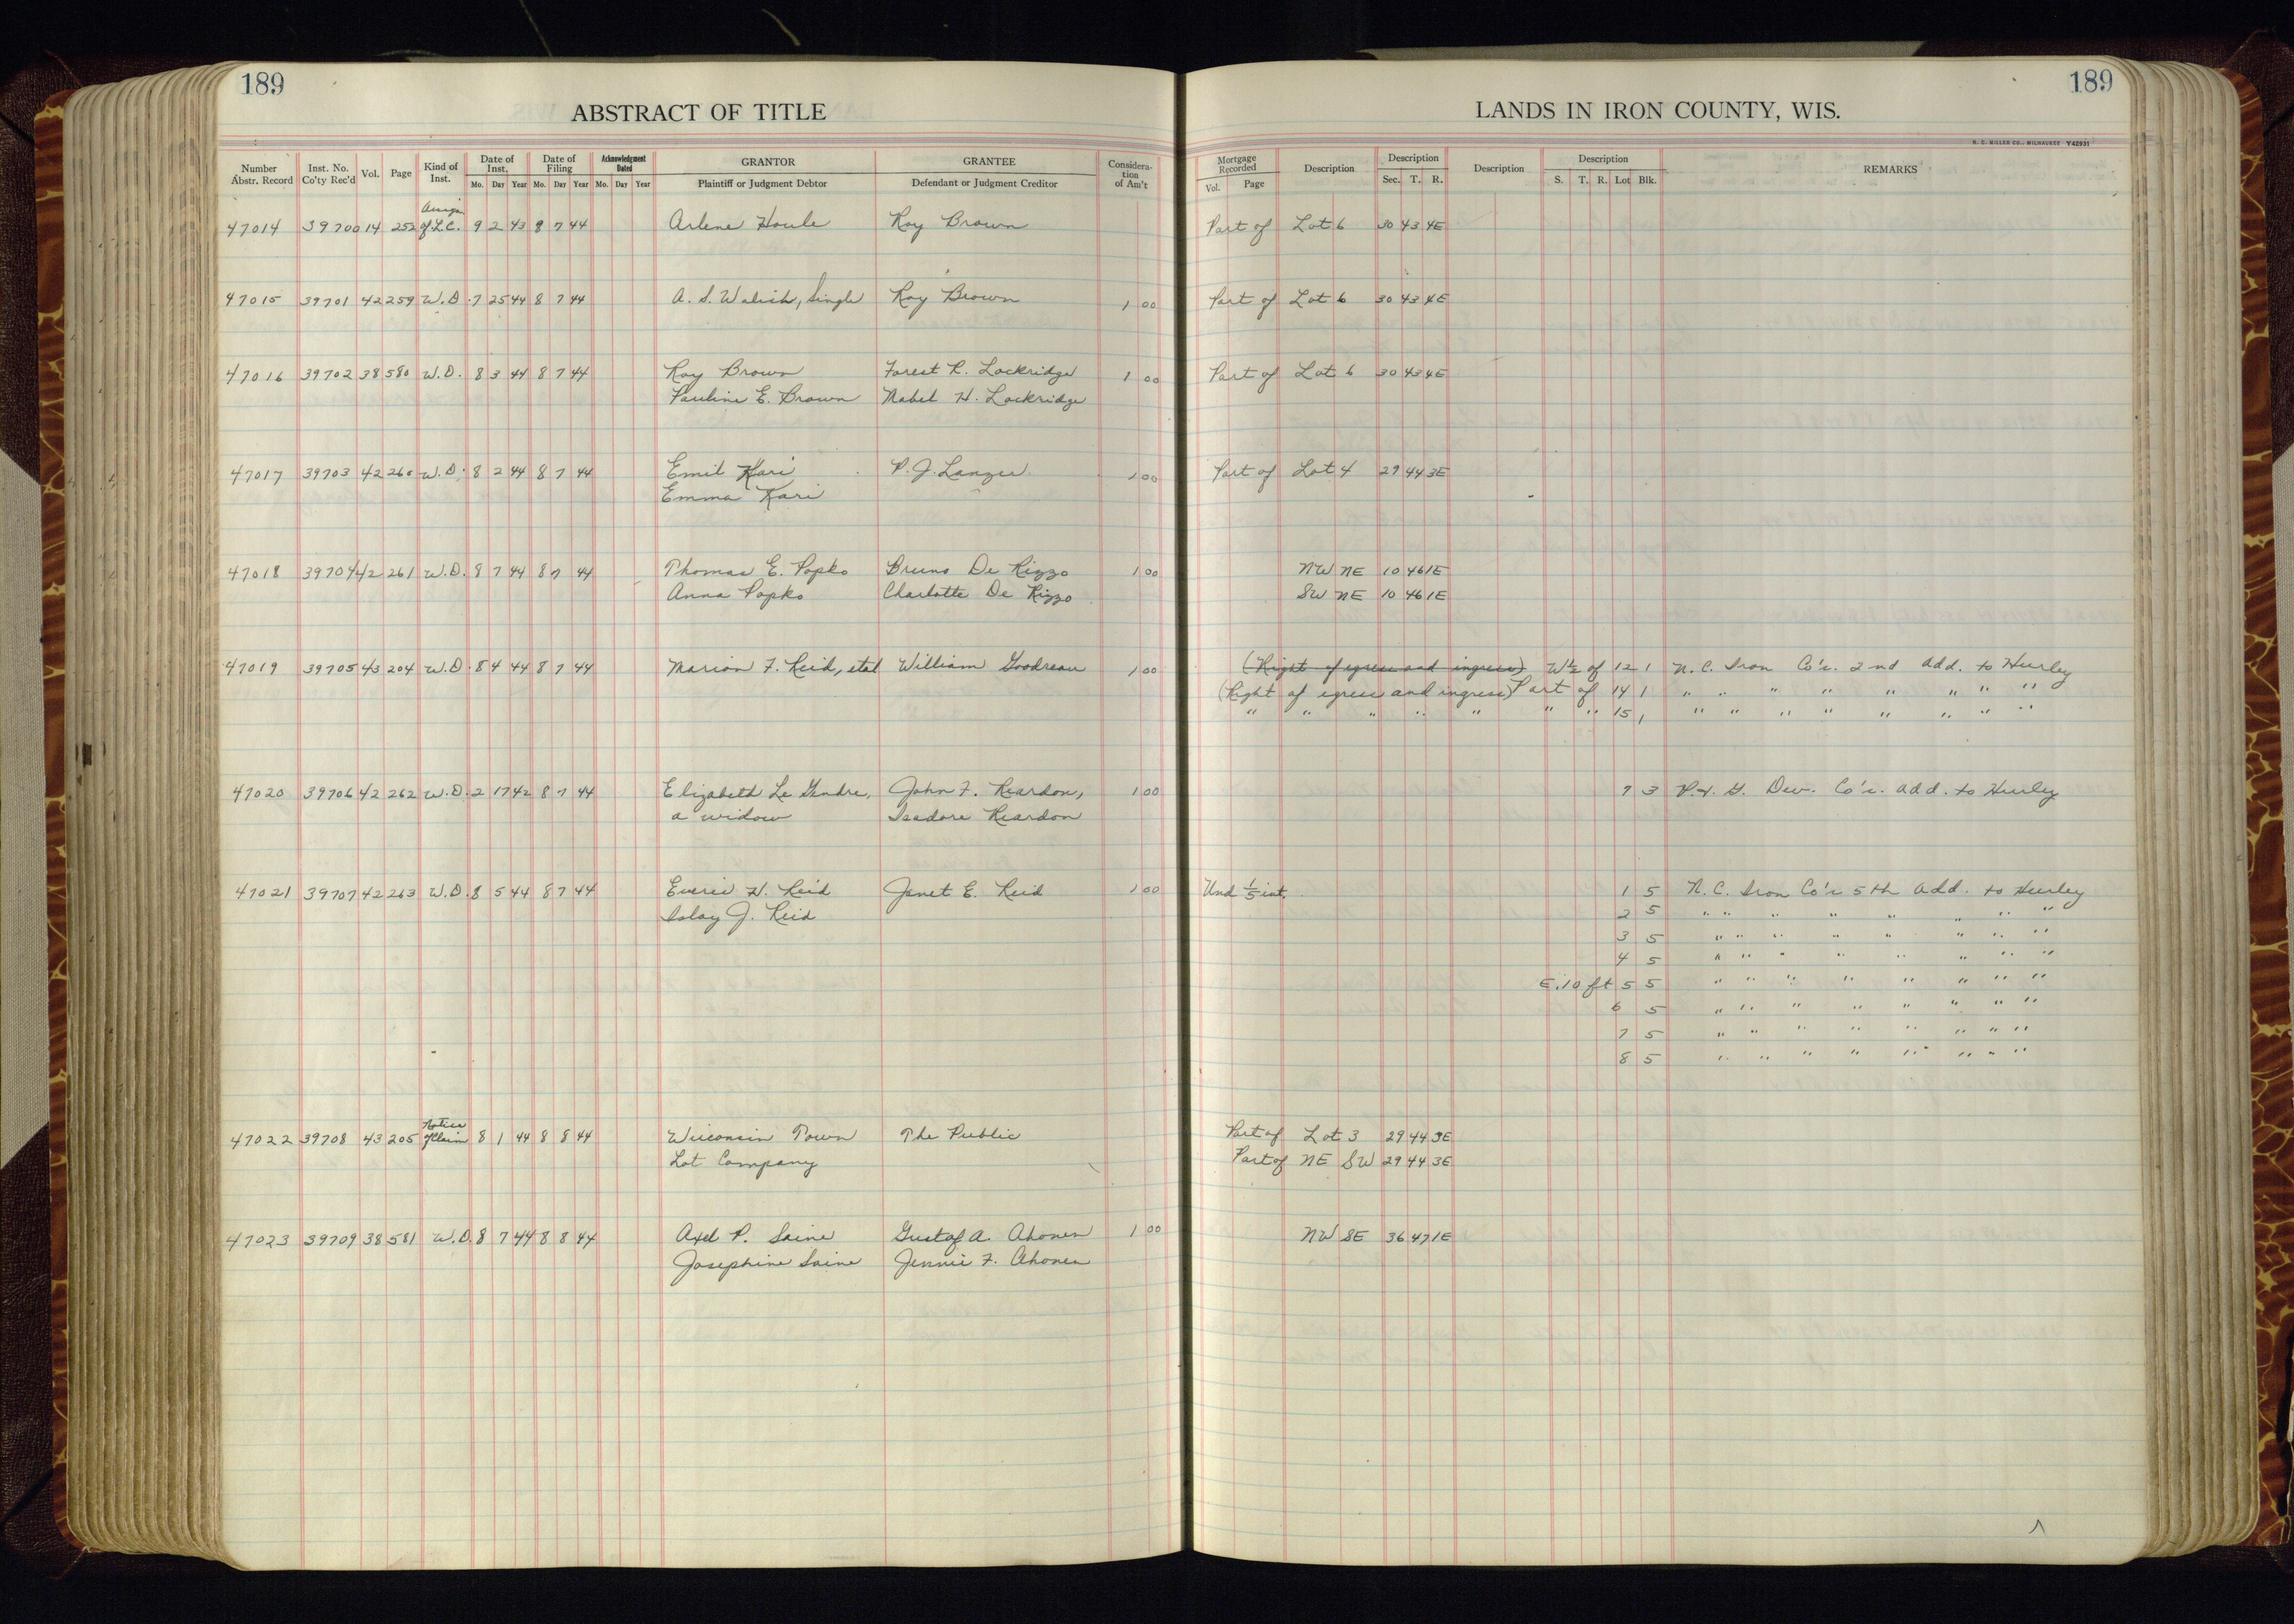 189
189
ABSTRACT OF TITLE
LANDS IN IRON COUNTY, WIS.
H. C. MILLER CO., MILWAUKEE Y42931
Number Abstr. Record Inst. No. Co'ty Rec'd Vol. Page Kind of Inst. Date of Inst. Mo. Day Year Date of Filing Mo. Day Year Acknowledgment Dated Mo. Day Year GRANTOR Plaintiff or Judgment Debtor GRANTEE Defendant or Judgment Creditor Considera-tion of Am't Mortgage Recorded Vol. Page Description Description Sec. T. R. Description Description S. T. R. Lot Blk. REMARKS
47014 39700 14 252 Assign of L.C. 9 2 43 8 7 44 Arlene Houle Roy Brown Part of Lot 6 30 43 4E
47015 39701 42 259 W.D. 7 25 44 8 7 44 A. S. Walish, Single Roy Brown 1 00 Part of Lot 6 30 43 4E
47016 39702 38 580 W.D. 8 3 44 8 7 44 Roy Brown Forest R. Lockridge 1 00 Part of Lot 6 30 43 4E
Pauline E. Brown Mabel H. Lockridge
47017 39703 42 260 W.D. 8 2 44 8 7 44 Emil Kari P. J. Lanzer 1 00 Part of Lot 4 29 44 3E
Emma Kari
47018 39704 42 261 W.D. 8 7 44 8 7 44 Thomas E. Popko Bruno De Rizzo 1 00 NW NE 10 46 1E
Anna Popko Charlotte De Rizzo SW NE 10 46 1E
47019 39705 43 204 W.D. 8 4 44 8 7 44 Marion F. Reid, etal William Goodreau 1 00 (Right of egress and ingress) W½ of 12 1 N. C. Iron Co's. 2nd Add. to Hurley
(Right of egress and ingress) Part of 14 1 " " " " " " " "
" " " " " " " 15 1 " " " " " " " "
47020 39706 42 262 W.D. 2 17 42 8 7 44 Elizabeth Le Gendre, John F. Reardon, 1 00 7 3 P. & G. Dev. Co's. Add. to Hurley
a widow Isadore Reardon
47021 39707 42 263 W.D. 8 5 44 8 7 44 Everic H. Reid Janet E. Reid 1 00 Und 1/5 int. 1 5 N. C. Iron Co's 5th Add. to Hurley
Islay J. Reid 2 5 " " " " " " " "
3 5 " " " " " " " "
4 5 " " " " " " " "
E. 10 ft 5 5 " " " " " " " "
6 5 " " " " " " " "
7 5 " " " " " " " "
8 5 " " " " " " " "
47022 39708 43 205 Notice of Claim 8 1 44 8 8 44 Wisconsin Town The Public Part of Lot 3 29 44 3E
Lot Company Part of NE SW 29 44 3E
47023 39709 38 581 W.D. 8 7 44 8 8 44 Axel P. Saine Gustof A. Ahonen 1 00 NW SE 36 47 1E
Josephine Saine Jennie F. Ahonen